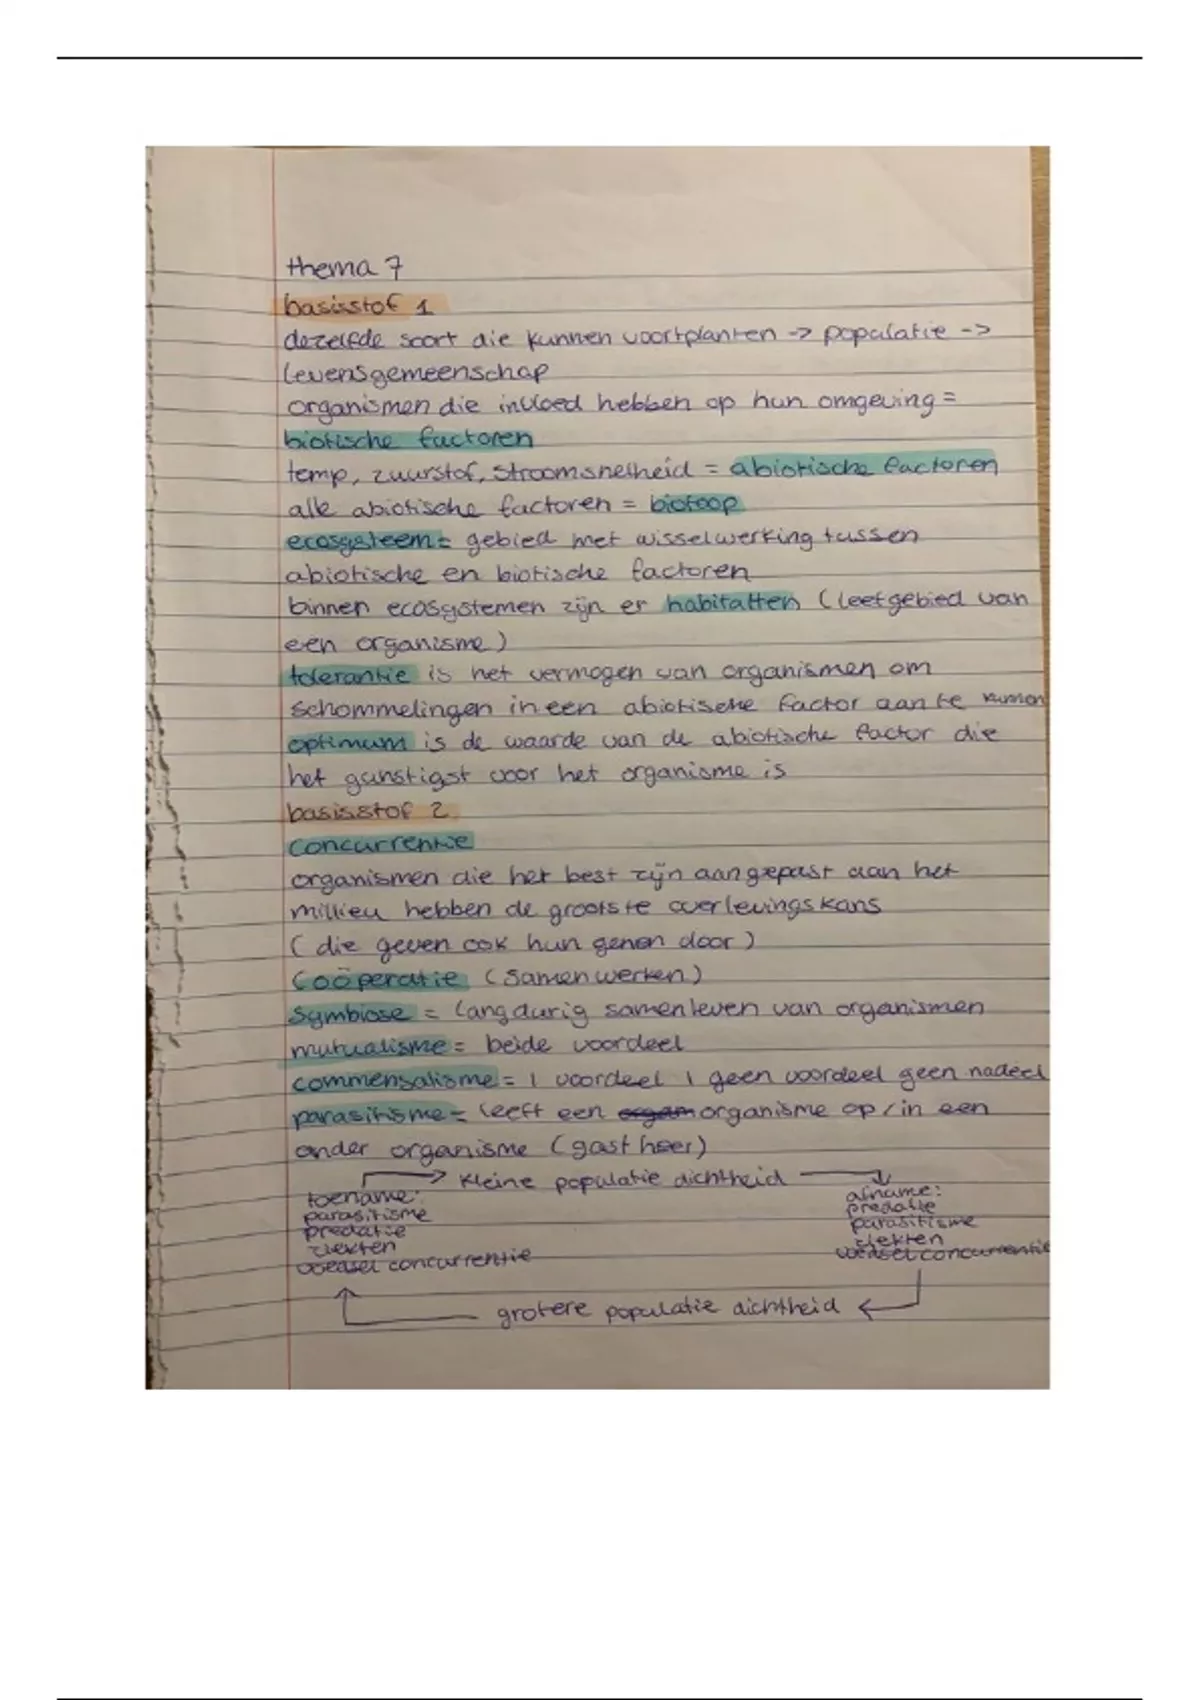 thema 7
basisstof 1
dezelfde soort die kunnen voortplanten -> populatie ->
levensgemeenschap
organismen die invloed hebben op hun omgeving =
biotische factoren
temp, zuurstof, stroomsnelheid = abiotische factoren
alle abiotische factoren = biotoop
ecosysteem = gebied met wisselwerking tussen
abiotische en biotische factoren
binnen ecosystemen zijn er habitatten (leefgebied van
een organisme)
tolerantie is het vermogen van organismen om
schommelingen in een abiotische factor aan te kunnen
optimum is de waarde van de abiotische factor die
het gunstigst voor het organisme is
basisstof 2
concurrentie
organismen die het best zijn aangepast aan het
millieu hebben de grootste overlevingskans
(die geven ook hun genen door)
coöperatie (samenwerken)
symbiose = langdurig samenleven van organismen
mutualisme = beide voordeel
commensalisme = 1 voordeel 1 geen voordeel geen nadeel
parasitisme = leeft een organ organisme op/in een
ander organisme (gastheer)
-> kleine populatie dichtheid ->
toename:
parasitisme
predatie
ziekten
voedsel concurrentie
afname:
predatie
parasitisme
ziekten
voedsel concurrentie
grotere populatie dichtheid <-